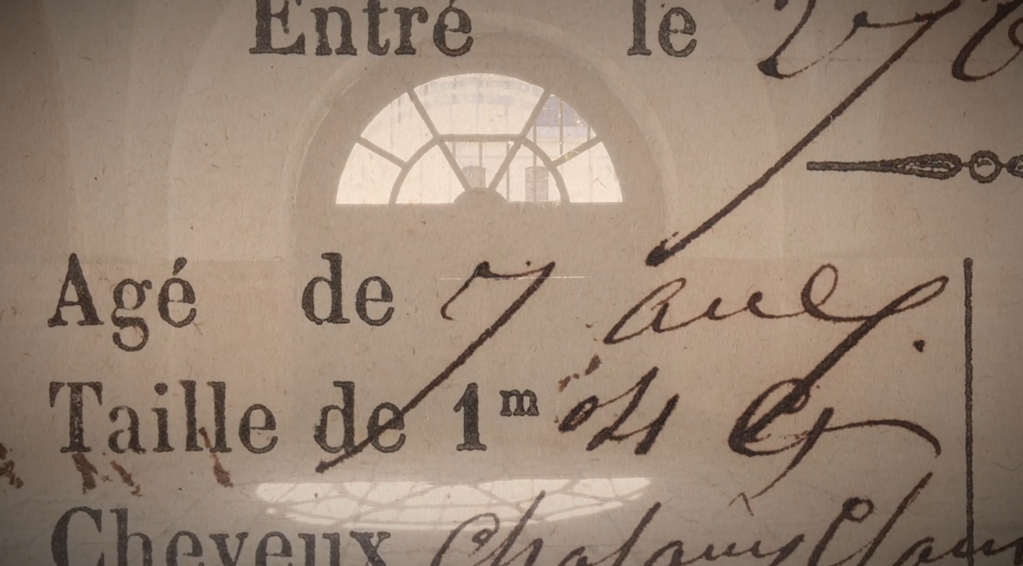 Entré le 27
Agé de 7 ans
Taille de 1m 04 c
Cheveux Chatains Clairs